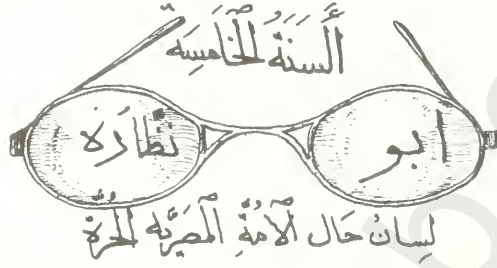 أَلسَنَةُ الخَامِسَة
ابو نظارَه
لِسانُ حَال الأُمةِ المَصرِيَّه الحُرَّة